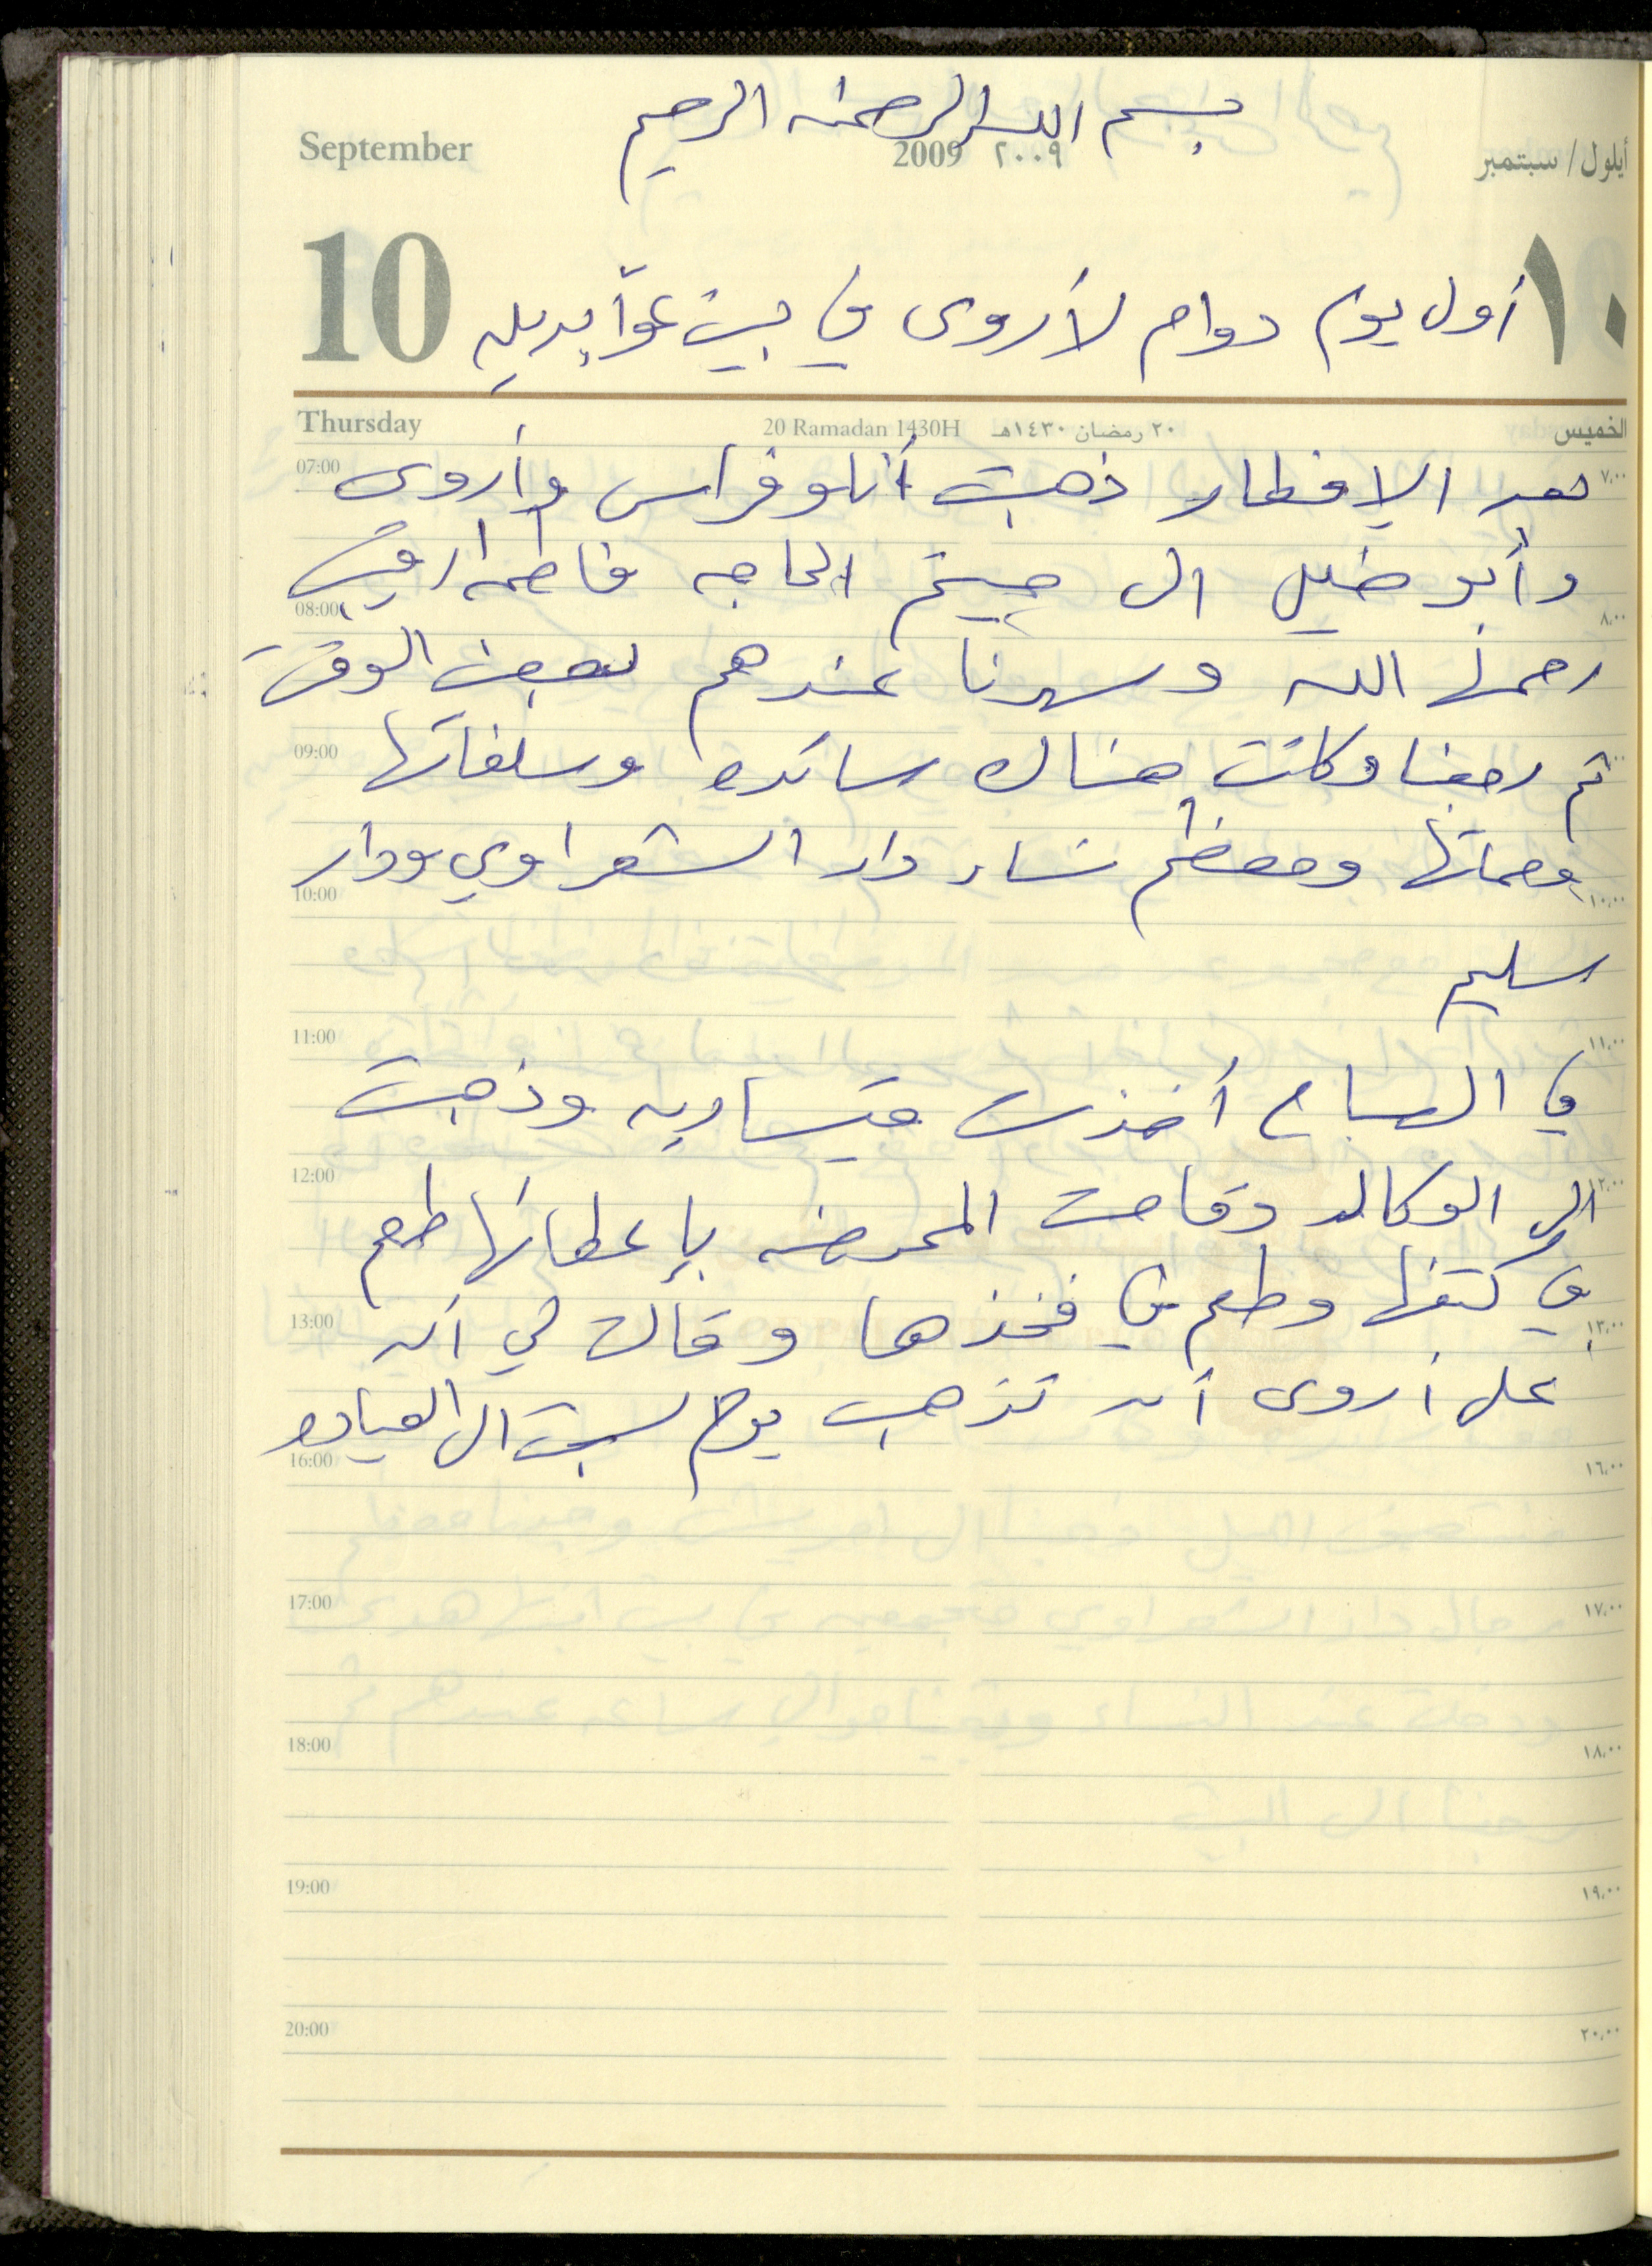 بسم الله الرحمن الرحيم
September 2009 ٢٠٠٩ أيلول / سبتمبر
10 ١٠
أول يوم دوام لأروى في بيت عوا
Thursday 20 Ramadan 1430H ٢٠ رمضان ١٤٣٠هـ الخميس
07:00 ٧,٠٠
بعد الإفطار ذهبت أنا و فراس وأروى
وأبو خليل الى الحاجه فاطمه
08:00 ٨,٠٠
رحمها الله وسهرنا عندهم لبعض الوقت
09:00
ثم رجعنا وكانت هناك سائده وسلفاتها
وحماتها ومعظم نساء دار الشعراوي ودار
10:00 ١٠,٠٠
سليم
11:00 ١١,٠٠
في الصباح أخذت ميساريه وذهبت
12:00 ١٢,٠٠
الى الوكاله وقامت الممرضه بإعطائها طعم
في كتفها وطعم في فخذها وقالت لي أن
13:00 ١٣,٠٠
على أروى أن تذهب يوم السبت الى العياده
16:00 ١٦,٠٠
17:00 ١٧,٠٠
18:00 ١٨,٠٠
19:00 ١٩,٠٠
20:00 ٢٠,٠٠